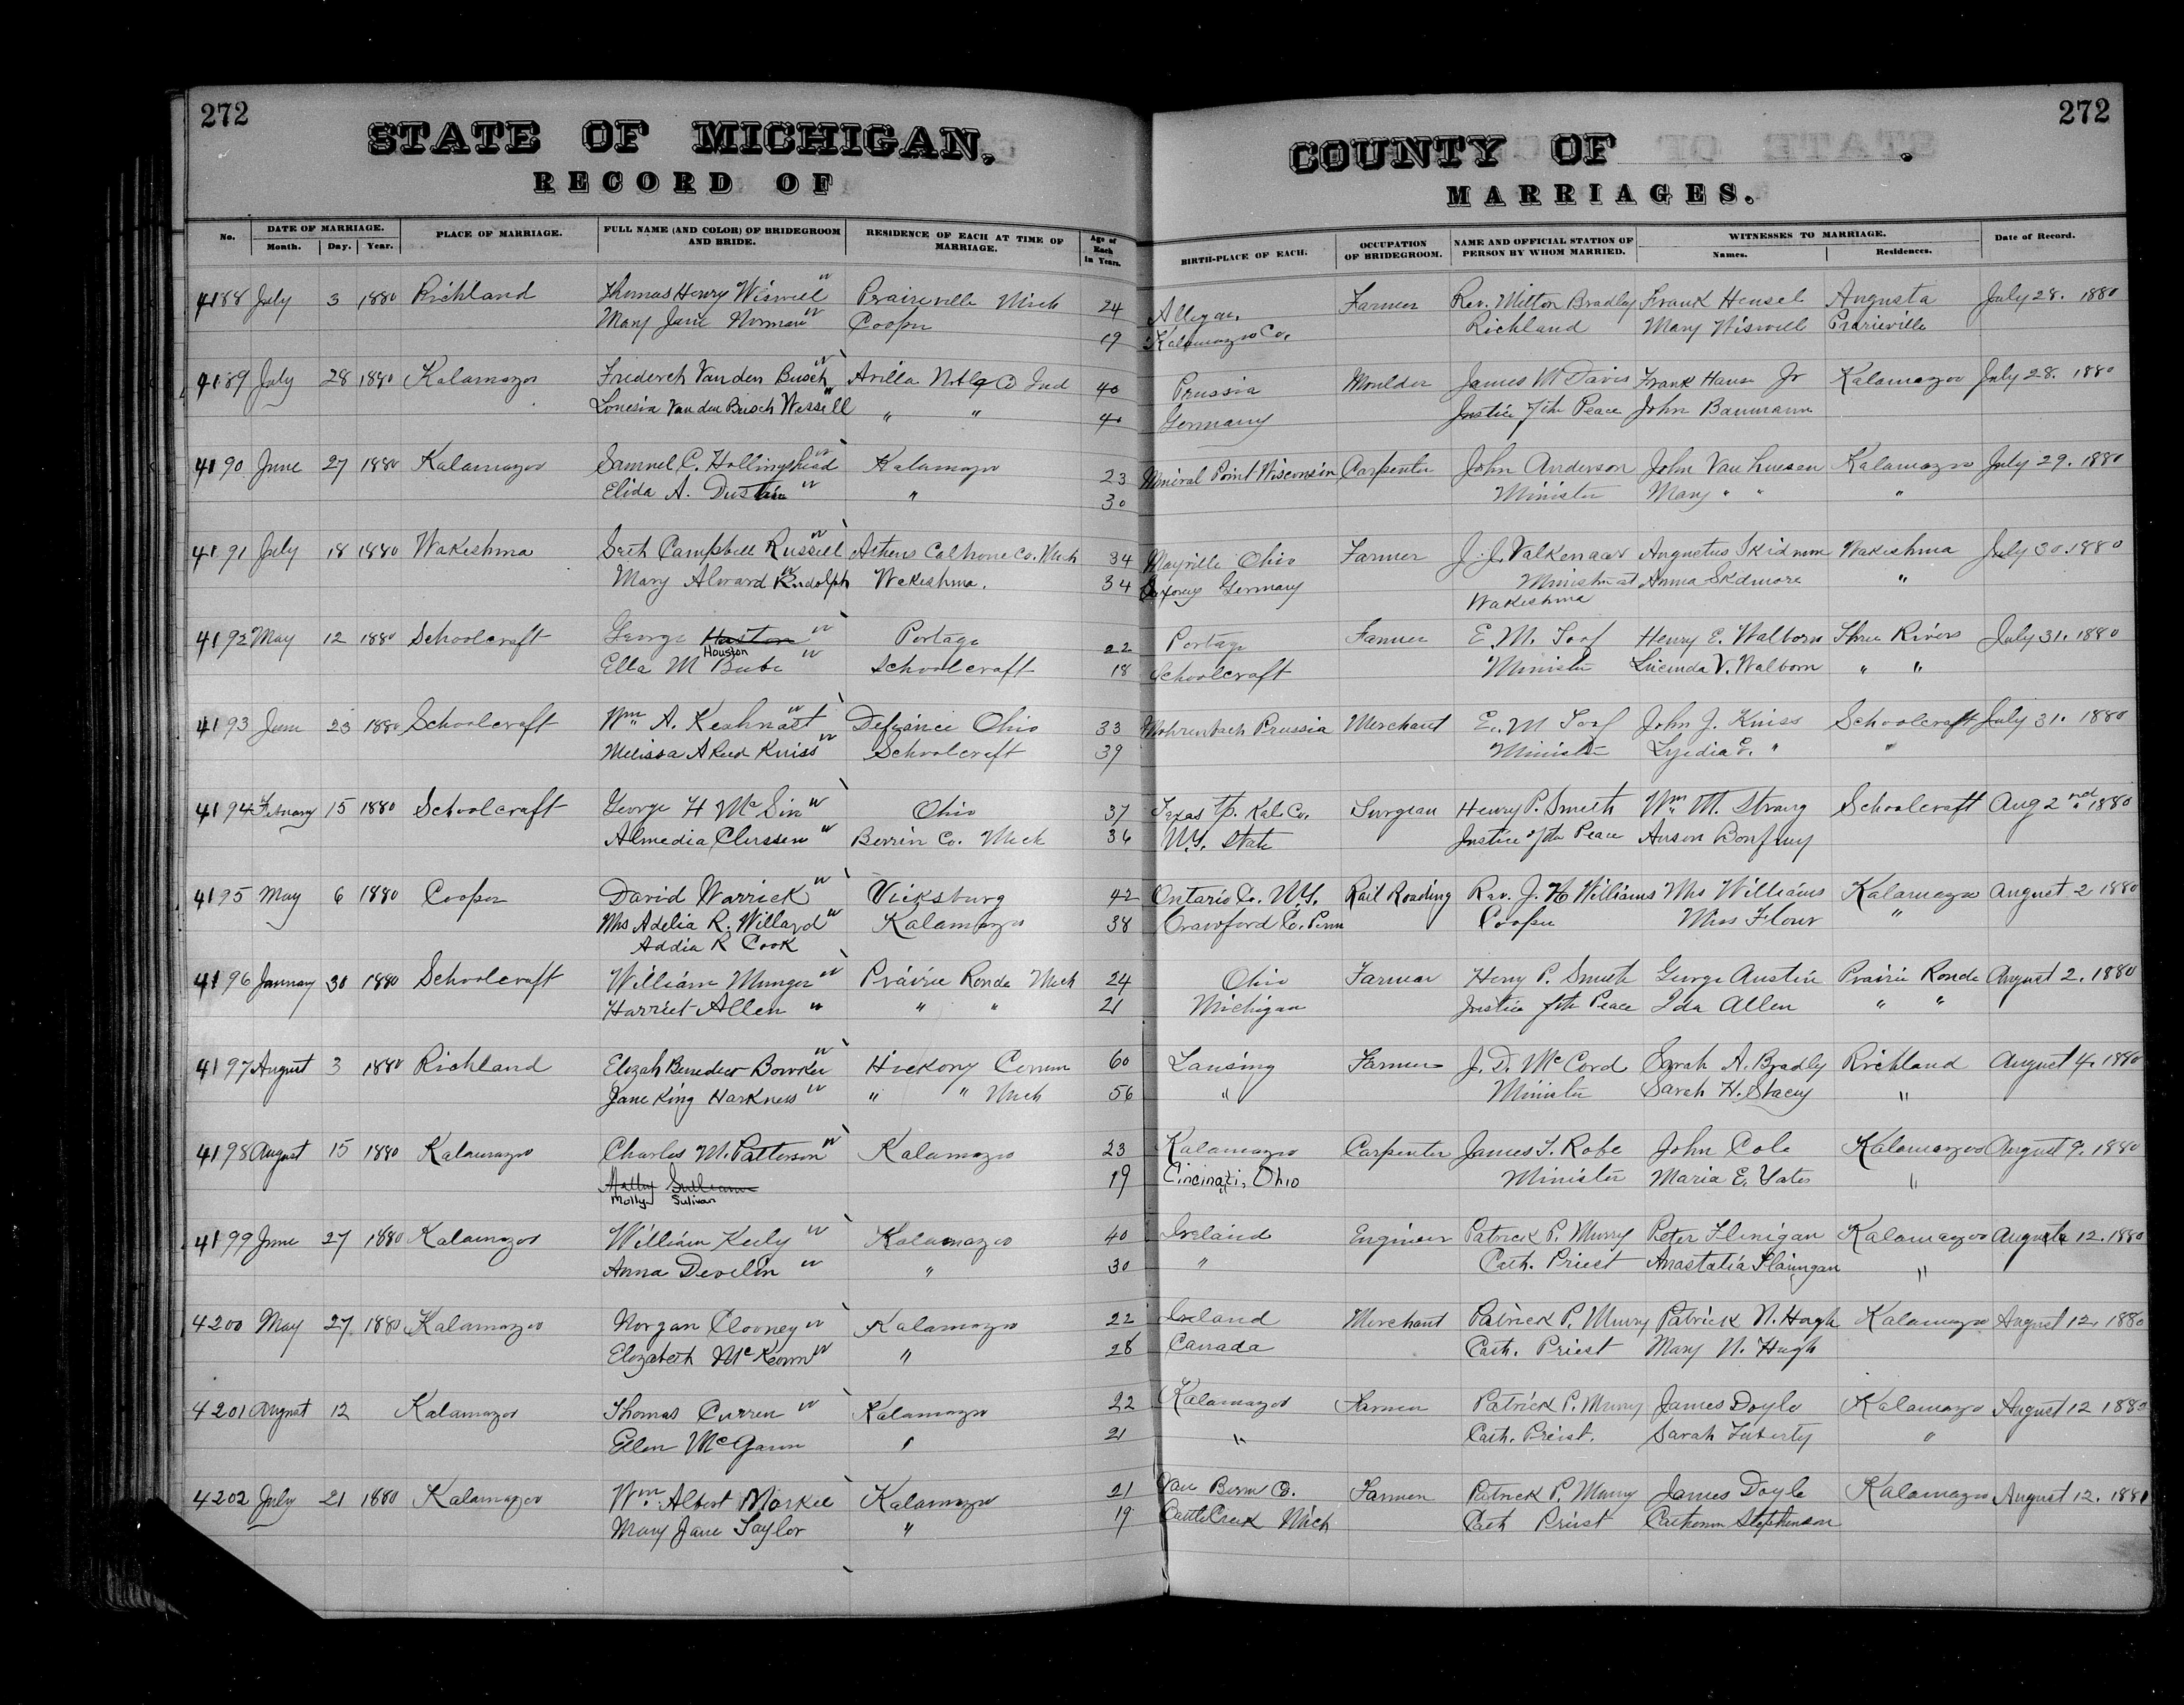 272
272
STATE OF MICHIGAN. COUNTY OF .
RECORD OF MARRIAGES.
No. DATE OF MARRIAGE. PLACE OF MARRIAGE. FULL NAME (AND COLOR) OF BRIDEGROOM AND BRIDE. RESIDENCE OF EACH AT TIME OF MARRIAGE. Age of Each in Years. BIRTH-PLACE OF EACH. OCCUPATION OF BRIDEGROOM. NAME AND OFFICIAL STATION OF PERSON BY WHOM MARRIED. WITNESSES TO MARRIAGE. Date of Record.
Month. Day. Year. Names. Residences.
4188 July 3 1880 Richland Thomas Henry Wiswell w Prairieville Mich 24 Allegan, Farmer Rev. Milton Bradley Frank Hensel Augusta July 28. 1880
Mary Jane Norman w Cooper 19 Kalamazoo Co. Richland Mary Wiswell Prarieville
4189 July 28 1880 Kalamazoo Frederch Van den Busch w Avilla Noble Co Ind 40 Prussia Moulder James W Davis Frank Hause Jr Kalamazoo July 28. 1880
Van den Busch Wessell " " 40 Germany Justice of the Peace John Baumann
4190 June 27 1880 Kalamazoo Samuel C. Hollingshead w Kalamazoo 23 Mineral Point Wisconsin Carpenter John Anderson John Van Kalamazoo July 29. 1880
Elida A. Dustin w " 30 Minister Mary " " "
4191 July 18 1880 Wakeshma Seth Campbell Russell w Athens Calhoune Co. Mich 34 Mayville Ohio Farmer J. J. Augustus Wakeshma July 30. 1880
Mary Alvard Rudolph w Wakeshma. 34 Germany Minister at Anna Skidmore "
Wakeshma
4192 May 12 1880 Schoolcraft George Huston w Portage 22 Portage Farmer E. M. Toof Henry E. Walborn Three Rivers July 31. 1880
Houston
Ella M Beebe w Schoolcraft 18 Schoolcraft Minister Lucinda V. Walborn " "
4193 June 23 1880 Schoolcraft Wm A. w Defiance Ohio 33 Prussia Merchant E. M Toof John J. Kniss Schoolcraft July 31. 1880
Melissa A Reed Kniss w Schoolcraft 39 Minister Lyedia E. " "
4194 February 15 1880 Schoolcraft George H Mc Sin w Ohio 37 Texas Tp. Kal. Co. Surgean Henry P. Smith Wm M. Strong Schoolcraft Aug 2nd 1880
Almedia w Berrin Co. Mich 36 N.Y. State Justice of the Peace Anson
4195 May 6 1880 Cooper David Warrick w Vicksburg 42 Ontario Co. N.Y. Rail Roading Rev. J. H Williams Mrs Williams Kalamazoo August 2 1880
Mrs Adelia R. Willard w Kalamazoo 38 Crawford Co. Penn Cooper Miss Flour "
Addia R Cook
4196 January 30 1880 Schoolcraft William Munger w Prairie Ronde Mich 24 Ohio Farmer Henry P. Smith George Austin Prairie Ronde August 2. 1880
Harriet Allen " " " 21 Michigan Justice of the Peace Ida Allen " "
4197 August 3 1880 Richland Elizah Benedict Bowker w Hickory Corners 60 Lansing Farmer J. D. McCord Sarah A. Bradly Richland August 4. 1880
Jane King Harkness w " " Mich 56 " Minister Sarah H. Stacey "
4198 August 15 1880 Kalamazoo Charles M. Patterson w Kalamazoo 23 Kalamazoo Carpenter James T. Robe John Cole Kalamazoo August 9. 1880
19 Cincinati, Ohio Minister Maria E. Yates "
Molly Sulivan
4199 June 27 1880 Kalamazoo William Keely w Kalamazoo 40 Ireland Engineer Patrick P. Murry Peter Flenigan Kalamazoo August 12. 1880
Anna Develin w " 30 " Cath. Priest Anastatia "
4200 May 27 1880 Kalamazoo Morgan Clooney w Kalamazoo 22 Ireland Merchant Patrick P. Murry Patrick N. Hough Kalamazoo August 12. 1880
Elizabeth McKeown w " 28 Canada Cath. Priest Mary N. Hugh
4201 August 12 Kalamazoo Thomas Curren w Kalamazoo 22 Kalamazoo Farmer Patrick P. Murry James Doyle Kalamazoo August 12 1880
Ellen McGann " 21 " Cath. Preist. Sarah "
4202 July 21 1880 Kalamazoo Wm. Albert Markee Kalamazoo 21 Van Buren Co. Farmer Patrick P. Murry James Doyle Kalamazoo August 12. 1880
Mary Jane Taylor " 19 Battle Creek Mich Cath Priest Stephenson